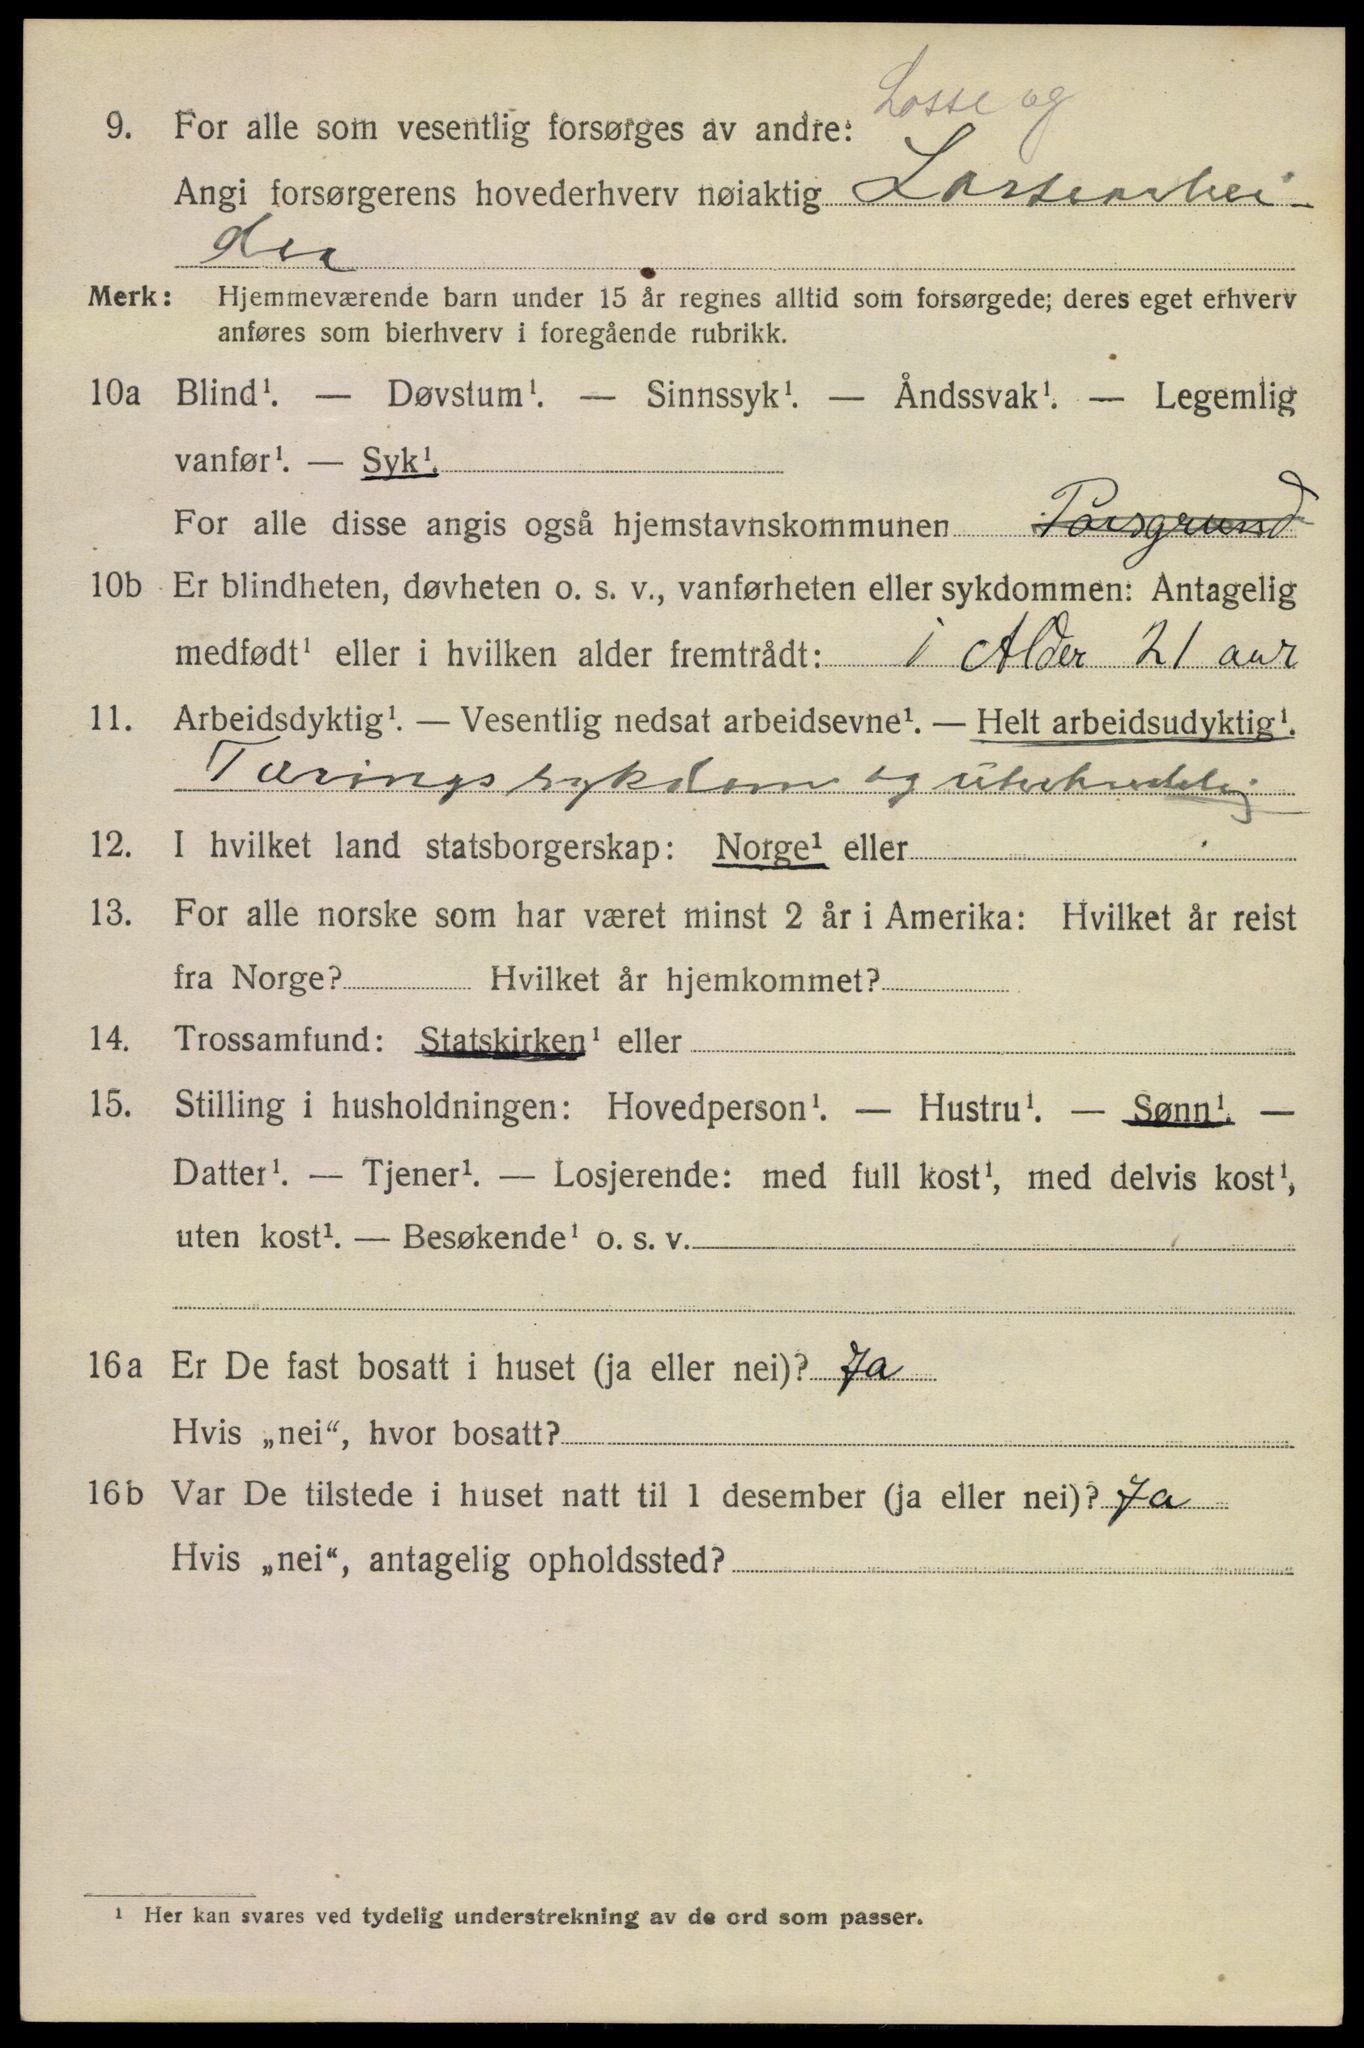 Losse og
9. For alle som vesentlig forsørges av andre:
Angi forsørgerens hovederhverv nøiaktig Lassearbei-
der
Merk: Hjemmeværende barn under 15 år regnes alltid som forsørgede; deres eget erhverv
anføres som bierhverv i foregående rubrikk.
10a Blind¹. — Døvstum¹. — Sinnssyk¹. — Åndssvak¹. — Legemlig
vanfør¹. — Syk¹.
For alle disse angis også hjemstavnskommunen Porsgrund
10b Er blindheten, døvheten o. s. v., vanførheten eller sykdommen: Antagelig
medfødt¹ eller i hvilken alder fremtrådt: i Alder 21 aar
11. Arbeidsdyktig¹. — Vesentlig nedsat arbeidsevne¹. — Helt arbeidsudyktig¹.
Tæringssykdom og
12. I hvilket land statsborgerskap: Norge¹ eller
13. For alle norske som har været minst 2 år i Amerika: Hvilket år reist
fra Norge? Hvilket år hjemkommet?
14. Trossamfund: Statskirken¹ eller
15. Stilling i husholdningen: Hovedperson¹. — Hustru¹. — Sønn¹. —
Datter¹. — Tjener¹. — Losjerende: med full kost¹, med delvis kost¹,
uten kost¹. — Besøkende¹ o. s. v.
16a Er De fast bosatt i huset (ja eller nei)? Ja
Hvis „nei“, hvor bosatt?
16b Var De tilstede i huset natt til 1 desember (ja eller nei)? Ja
Hvis „nei“, antagelig opholdssted?
¹ Her kan svares ved tydelig understrekning av de ord som passer.